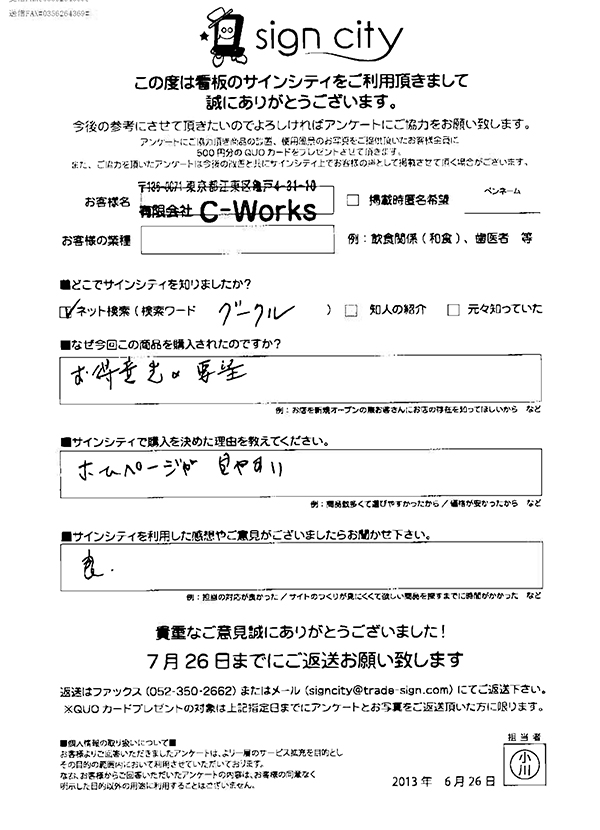 送信FAX#0356264369#
sign city
この度は看板のサインシティをご利用頂きまして
誠にありがとうございます。
今後の参考にさせて頂きたいのでよろしければアンケートにご協力をお願い致します。
アンケートにご協力頂き商品の設置、使用風景のお写真をご提供頂いたお客様全員に
500円分のQUOカードをプレゼントさせて頂きます。
また、ご協力を頂いたアンケートは今後の改善と共にサインシティ上でお客様の声として掲載させて頂く場合がございます、
お客様名
〒136-0071 東京都江東区亀戸4-31-10
有限会社 C-Works
□ 掲載時匿名希望
ペンネーム
お客様の業種
例：飲食関係（和食）、歯医者 等
■どこでサインシティを知りましたか？
☑ネット検索（検索ワード グークル ） □ 知人の紹介 □ 元々知っていた
■なぜ今回この商品を購入されたのですか？
お得意先の要望
例：お店を新規オープンの為お客さんにお店の存在を知ってほしいから など
■サインシティで購入を決めた理由を教えてください。
ホームページが 見やすい
例：商品数多くて選びやすかったから／価格が安かったから など
■サインシティを利用した感想やご意見がございましたらお聞かせ下さい。
良.
例：担当の対応が良かった／サイトのつくりが見にくくて欲しい商品を探すまでに時間がかかった など
貴重なご意見誠にありがとうございました！
7月26日までにご返送お願い致します
返送はファックス（052-350-2662）またはメール（signcity@trade-sign.com）にてご返送下さい。
※QUOカードプレゼントの対象は上記指定日までにアンケートとお写真をご返送頂いた方に限ります。
■個人情報の取り扱いについて■
お客様よりご回答いただきましたアンケートは、より一層のサービス拡充を目的とし
その目的の範囲内において利用させていただいております。
なお、お客様からご回答いただいたアンケートの内容は、お客様の同意なく
明示した目的以外の用途に利用することはございません。
2013年 6月26日
担当者
小川